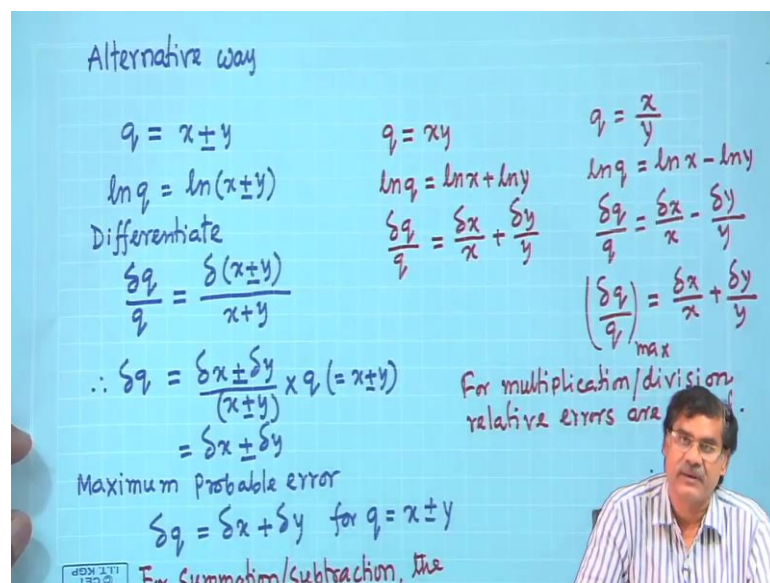 Alternative way
q = x ± y
ln q = ln(x±y)
Differentiate
δq/q = δ(x±y)/x+y
∴ δq = δx±δy/(x±y) × q (= x±y)
= δx ± δy
Maximum Probable error
δq = δx + δy for q = x±y
For summation/subtraction, the
q = xy
ln q = ln x + ln y
δq/q = δx/x + δy/y
q = x/y
ln q = ln x − ln y
δq/q = δx/x − δy/y
(δq/q)max = δx/x + δy/y
For multiplication/division
relative errors are
© CET
I.I.T. KGP